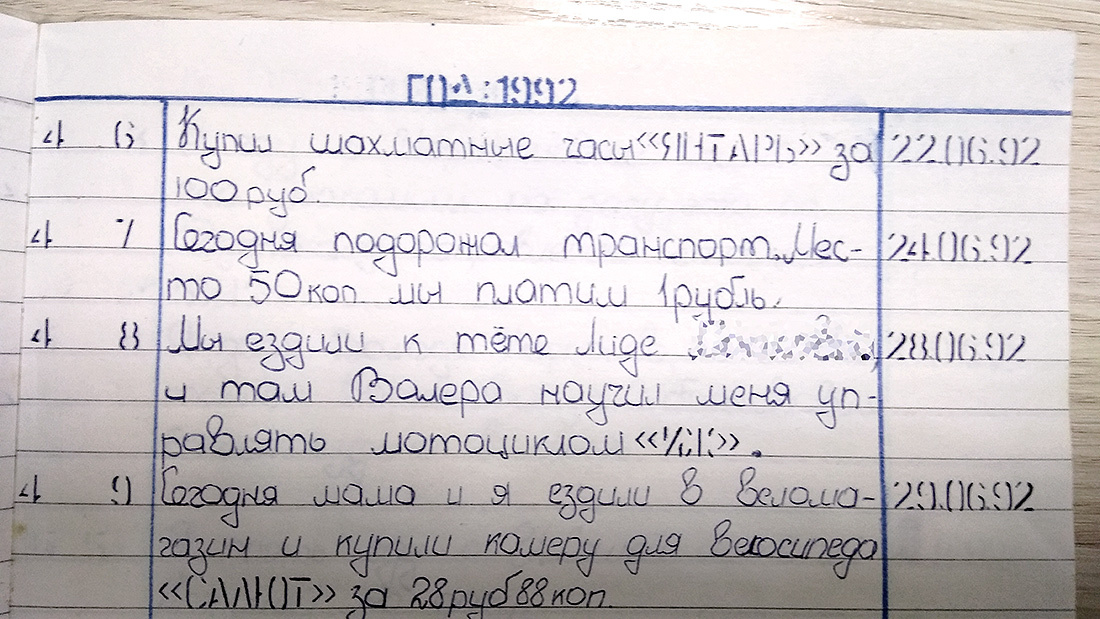 ГОД: 1992
46 Купил шахматные часы «ЯНТАРЬ» за 22.06.92
100 руб.
47 Сегодня подорожал транспорт. Мес- 24.06.92
то 50 коп мы платим 1 рубль.
48 Мы ездили к тёте Лиде 28.06.92
и там Валера научил меня уп-
равлять мотоциклом «ИЖ».
49 Сегодня мама и я ездили в велома- 29.06.92
газин и купили камеру для велосипеда
«САЛЮТ» за 28 руб 88 коп.